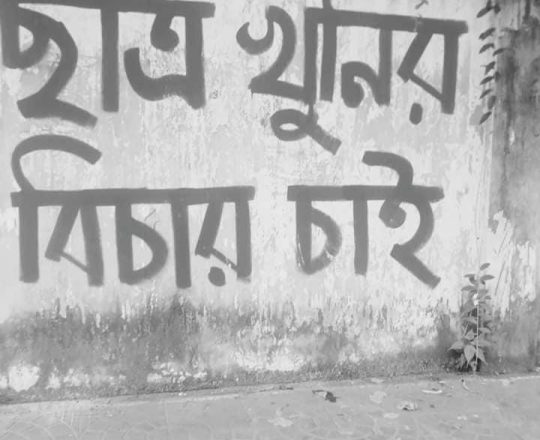 ছাত্র খুনির
বিচার চাই